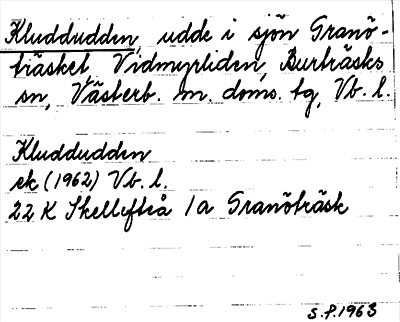 Kluddudden, udde i sjön Granö-
träsket, Vidmyrliden, Burträsks
sn, Västerb. m. doms. tg, Vb. l.
Kluddudden
ek (1962) Vb. l.
22 K Skellefteå 1a Granöträsk
S.P. 1963